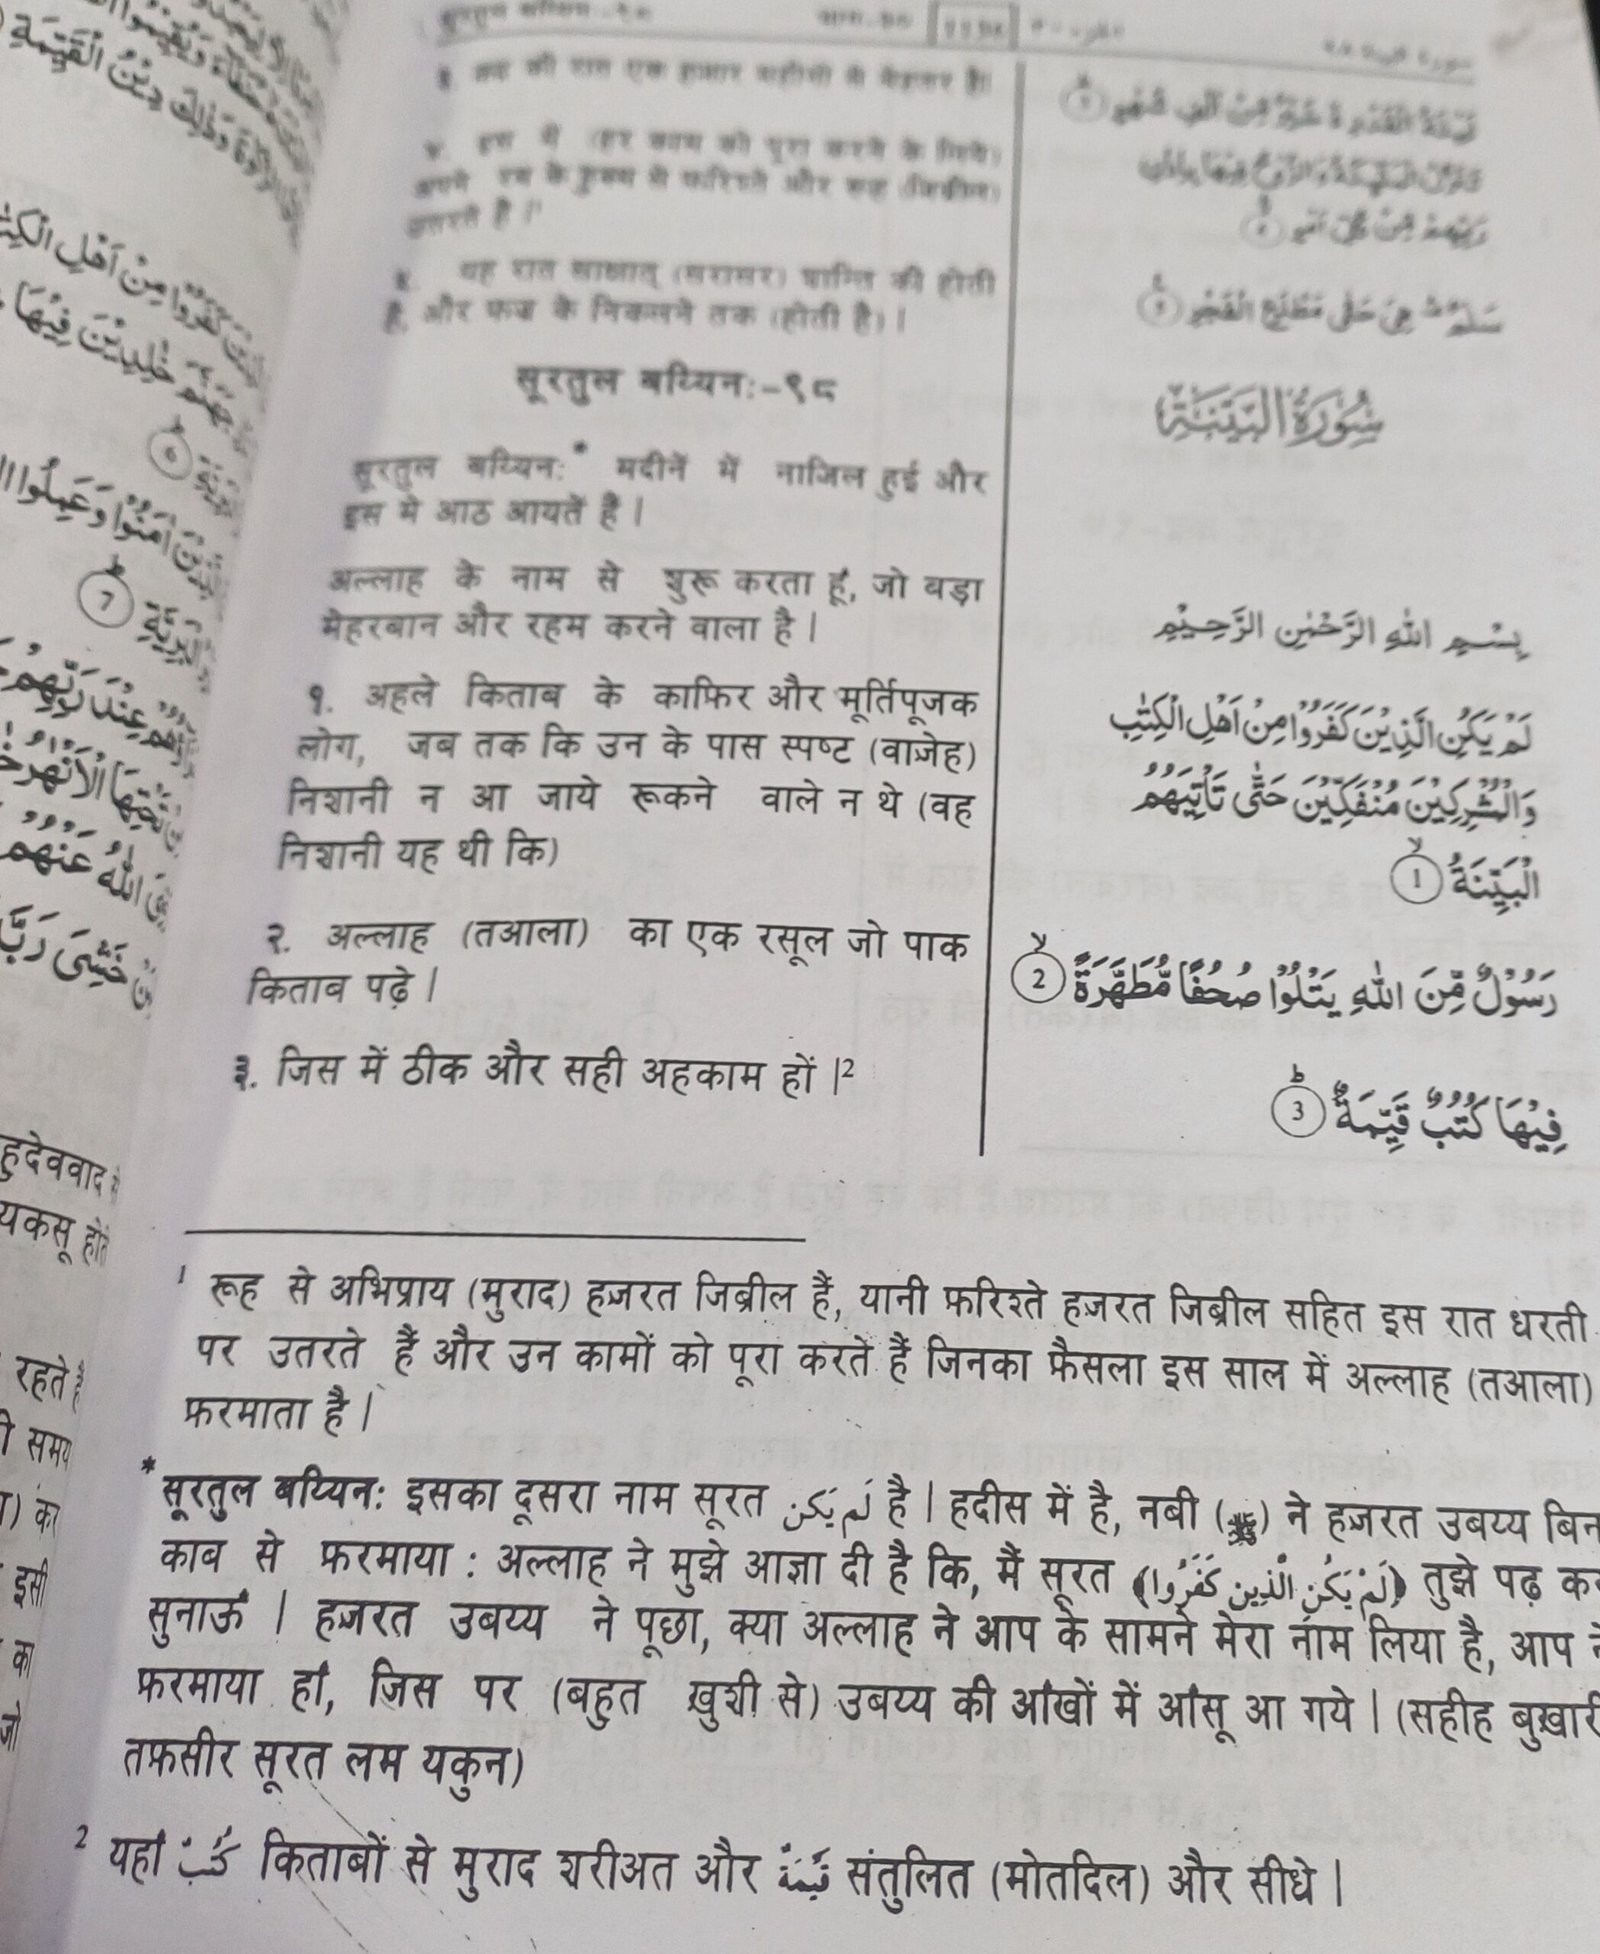 सूरतुल बय्यिन:-९८
भाग-३०
३. कद्र की रात एक हजार महीनों से बेहतर है।
४. इस में (हर काम को पूरा करने के लिये)
अपने रब के हुक्म से फरिश्ते और रूह (जिब्रील)
उतरते हैं ।¹
५. यह रात साक्षात् (सरासर) शान्ति की होती
है, और फज्र के निकलने तक (होती है) ।
सूरतुल बय्यिन:-९८
सूरतुल बय्यिन:* मदीनें में नाजिल हुई और
इस मे आठ आयतें हैं ।
अल्लाह के नाम से शुरू करता हूं, जो बड़ा
मेहरबान और रहम करने वाला है ।
१. अहले किताब के काफ़िर और मूर्तिपूजक
लोग, जब तक कि उन के पास स्पष्ट (वाज़ेह)
निशानी न आ जाये रूकने वाले न थे (वह
निशानी यह थी कि)
२. अल्लाह (तआला) का एक रसूल जो पाक
किताब पढ़े ।
३. जिस में ठीक और सही अहकाम हों ।²
لَيْلَةُ الْقَدْرِ خَيْرٌ مِّنْ اَلْفِ شَهْرٍ ③
تَنَزَّلُ الْمَلٰٓئِكَةُ وَالرُّوْحُ فِيْهَا بِاِذْنِ
رَبِّهِمْ مِّنْ كُلِّ اَمْرٍ ④
سَلٰمٌ هِيَ حَتّٰى مَطْلَعِ الْفَجْرِ ⑤
سُوْرَةُ الْبَيِّنَةِ
بِسْمِ اللّٰهِ الرَّحْمٰنِ الرَّحِيْمِ
لَمْ يَكُنِ الَّذِيْنَ كَفَرُوْا مِنْ اَهْلِ الْكِتٰبِ
وَالْمُشْرِكِيْنَ مُنْفَكِّيْنَ حَتّٰى تَأْتِيَهُمُ
الْبَيِّنَةُ ①
رَسُوْلٌ مِّنَ اللّٰهِ يَتْلُوْا صُحُفًا مُّطَهَّرَةً ②
فِيْهَا كُتُبٌ قَيِّمَةٌ ③
¹ रूह से अभिप्राय (मुराद) हज़रत जिब्रील हैं, यानी फ़रिश्ते हज़रत जिब्रील सहित इस रात धरती
पर उतरते हैं और उन कामों को पूरा करते हैं जिनका फ़ैसला इस साल में अल्लाह (तआला)
फ़रमाता है ।
* सूरतुल बय्यिन: इसका दूसरा नाम सूरत لَمْ يَكُنْ है । हदीस में है, नबी (ﷺ) ने हज़रत उबय्य बिन
काब से फ़रमाया : अल्लाह ने मुझे आज्ञा दी है कि, मैं सूरत (لَمْ يَكُنِ الَّذِينَ كَفَرُوا) तुझे पढ़ कर
सुनाऊँ । हज़रत उबय्य ने पूछा, क्या अल्लाह ने आप के सामने मेरा नाम लिया है, आप ने
फ़रमाया हां, जिस पर (बहुत ख़ुशी से) उबय्य की आंखों में आंसू आ गये । (सहीह बुख़ारी
तफ़सीर सूरत लम यकुन)
² यहां كُتُبٌ किताबों से मुराद शरीअत और قَيِّمَةٌ संतुलित (मोतदिल) और सीधे ।